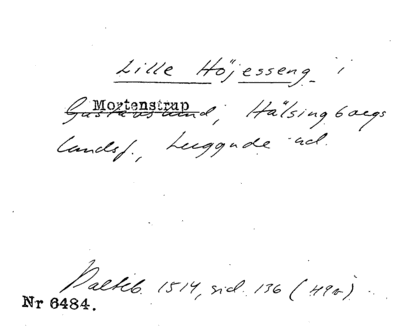 Lille Höjesseng i
Mortenstrup
Gustavslund, Hälsingborgs
landsf., Luggude hd.
Palteb. 1514, sid. 136 (H9r)
Nr 6484.